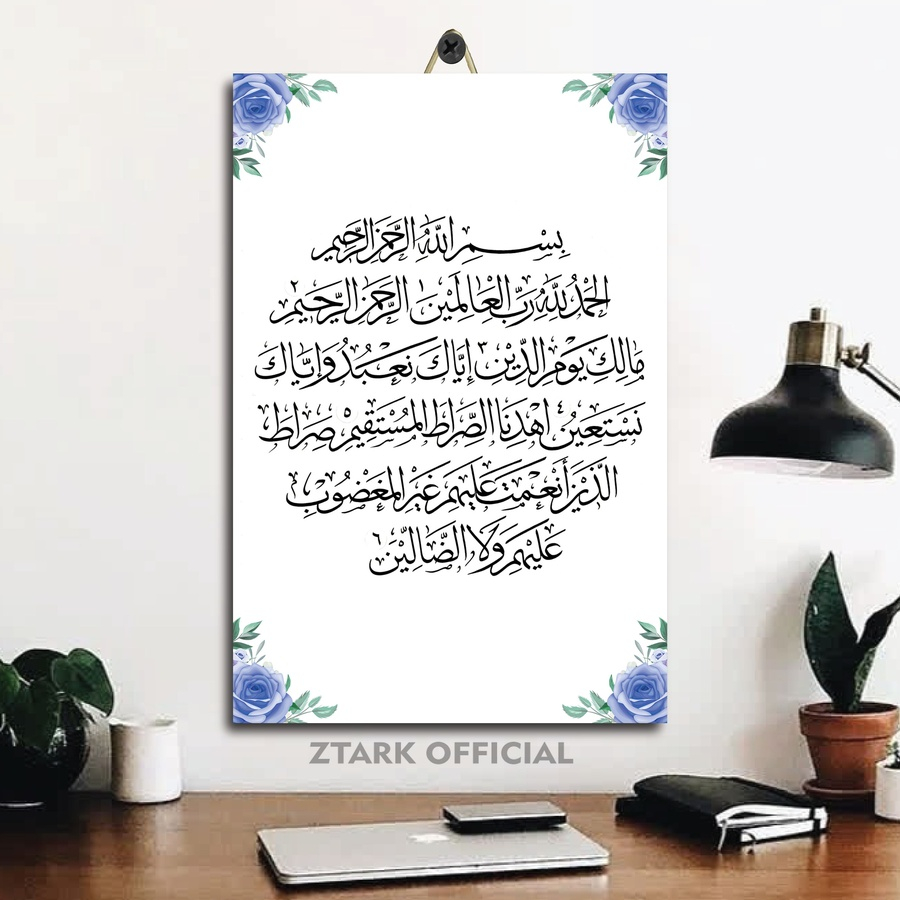 بِسْمِ اللّٰهِ الرَّحْمٰنِ الرَّحِيْمِ
الْحَمْدُ لِلّٰهِ رَبِّ الْعَالَمِيْنَ ١ الرَّحْمٰنِ الرَّحِيْمِ ٢
مَالِكِ يَوْمِ الدِّيْنِ ٣ إِيَّاكَ نَعْبُدُ وَإِيَّاكَ
نَسْتَعِيْنُ ٤ اهْدِنَا الصِّرَاطَ الْمُسْتَقِيْمَ صِرَاطَ
الَّذِيْنَ أَنْعَمْتَ عَلَيْهِمْ غَيْرِ الْمَغْضُوْبِ
عَلَيْهِمْ وَلَا الضَّالِّيْنَ ٦
ZTARK OFFICIAL